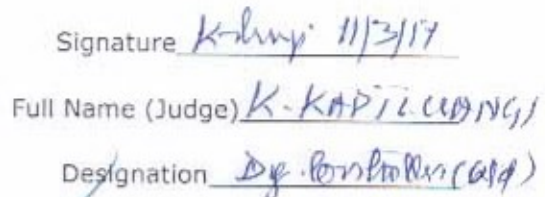 Signature 11/3/17
Full Name (Judge) K. KAPILUANGI
Designation Dy. Controller (Q&A)